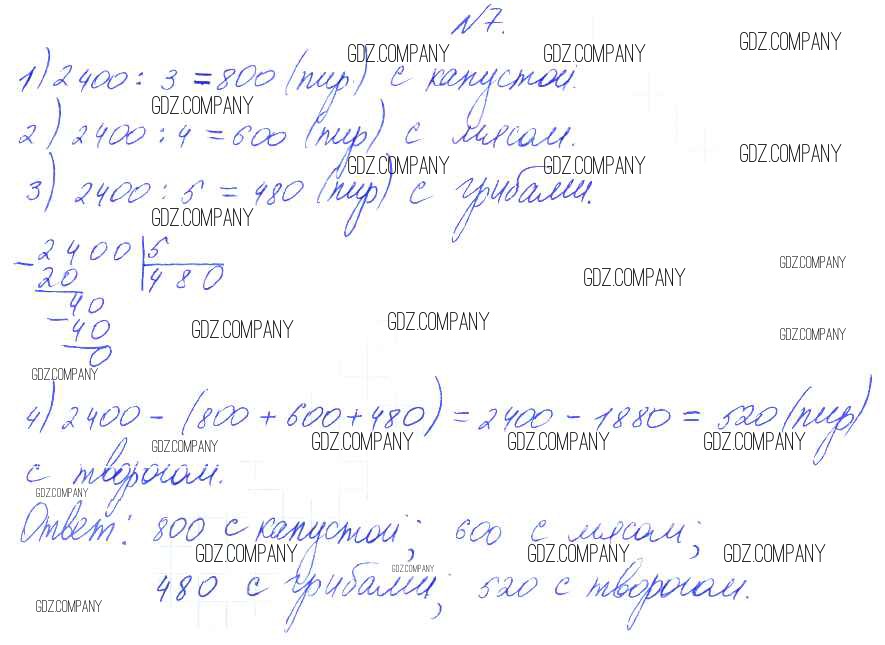 N7.
GDZ.COMPANY GDZ.COMPANY GDZ.COMPANY
1) 2400 : 3 = 800 (пир) с капустой.
GDZ.COMPANY
2) 2400 : 4 = 600 (пир) с мясом.
GDZ.COMPANY GDZ.COMPANY GDZ.COMPANY
3) 2400 : 5 = 480 (пир) с грибами.
GDZ.COMPANY
- 2400 | 5
20 | 480
GDZ.COMPANY GDZ.COMPANY
- 40
40
GDZ.COMPANY GDZ.COMPANY GDZ.COMPANY
0
GDZ.COMPANY
4) 2400 - (800 + 600 + 480) = 2400 - 1880 = 520 (пир)
GDZ.COMPANY GDZ.COMPANY GDZ.COMPANY GDZ.COMPANY
с творогом.
GDZ.COMPANY
Ответ: 800 с капустой; 600 с мясом;
GDZ.COMPANY GDZ.COMPANY GDZ.COMPANY
GDZ.COMPANY
480 с грибами; 520 с творогом.
GDZ.COMPANY